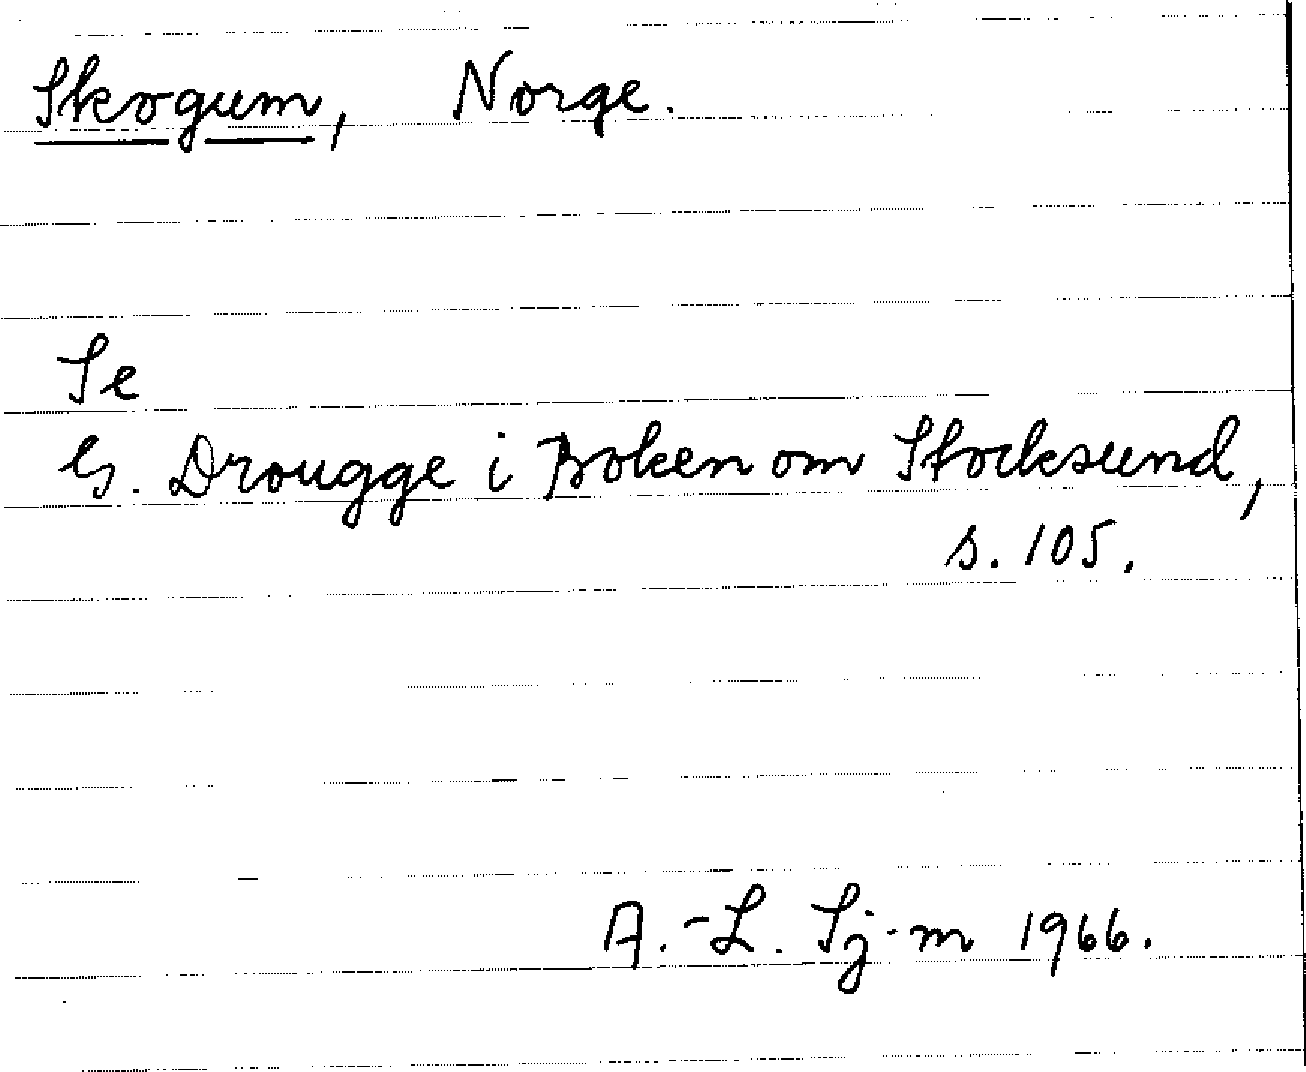 Skogum, Norge.
Se
G. Drougge i Boken om Stocksund,
s. 105.
A.-L. Sj-m 1966.